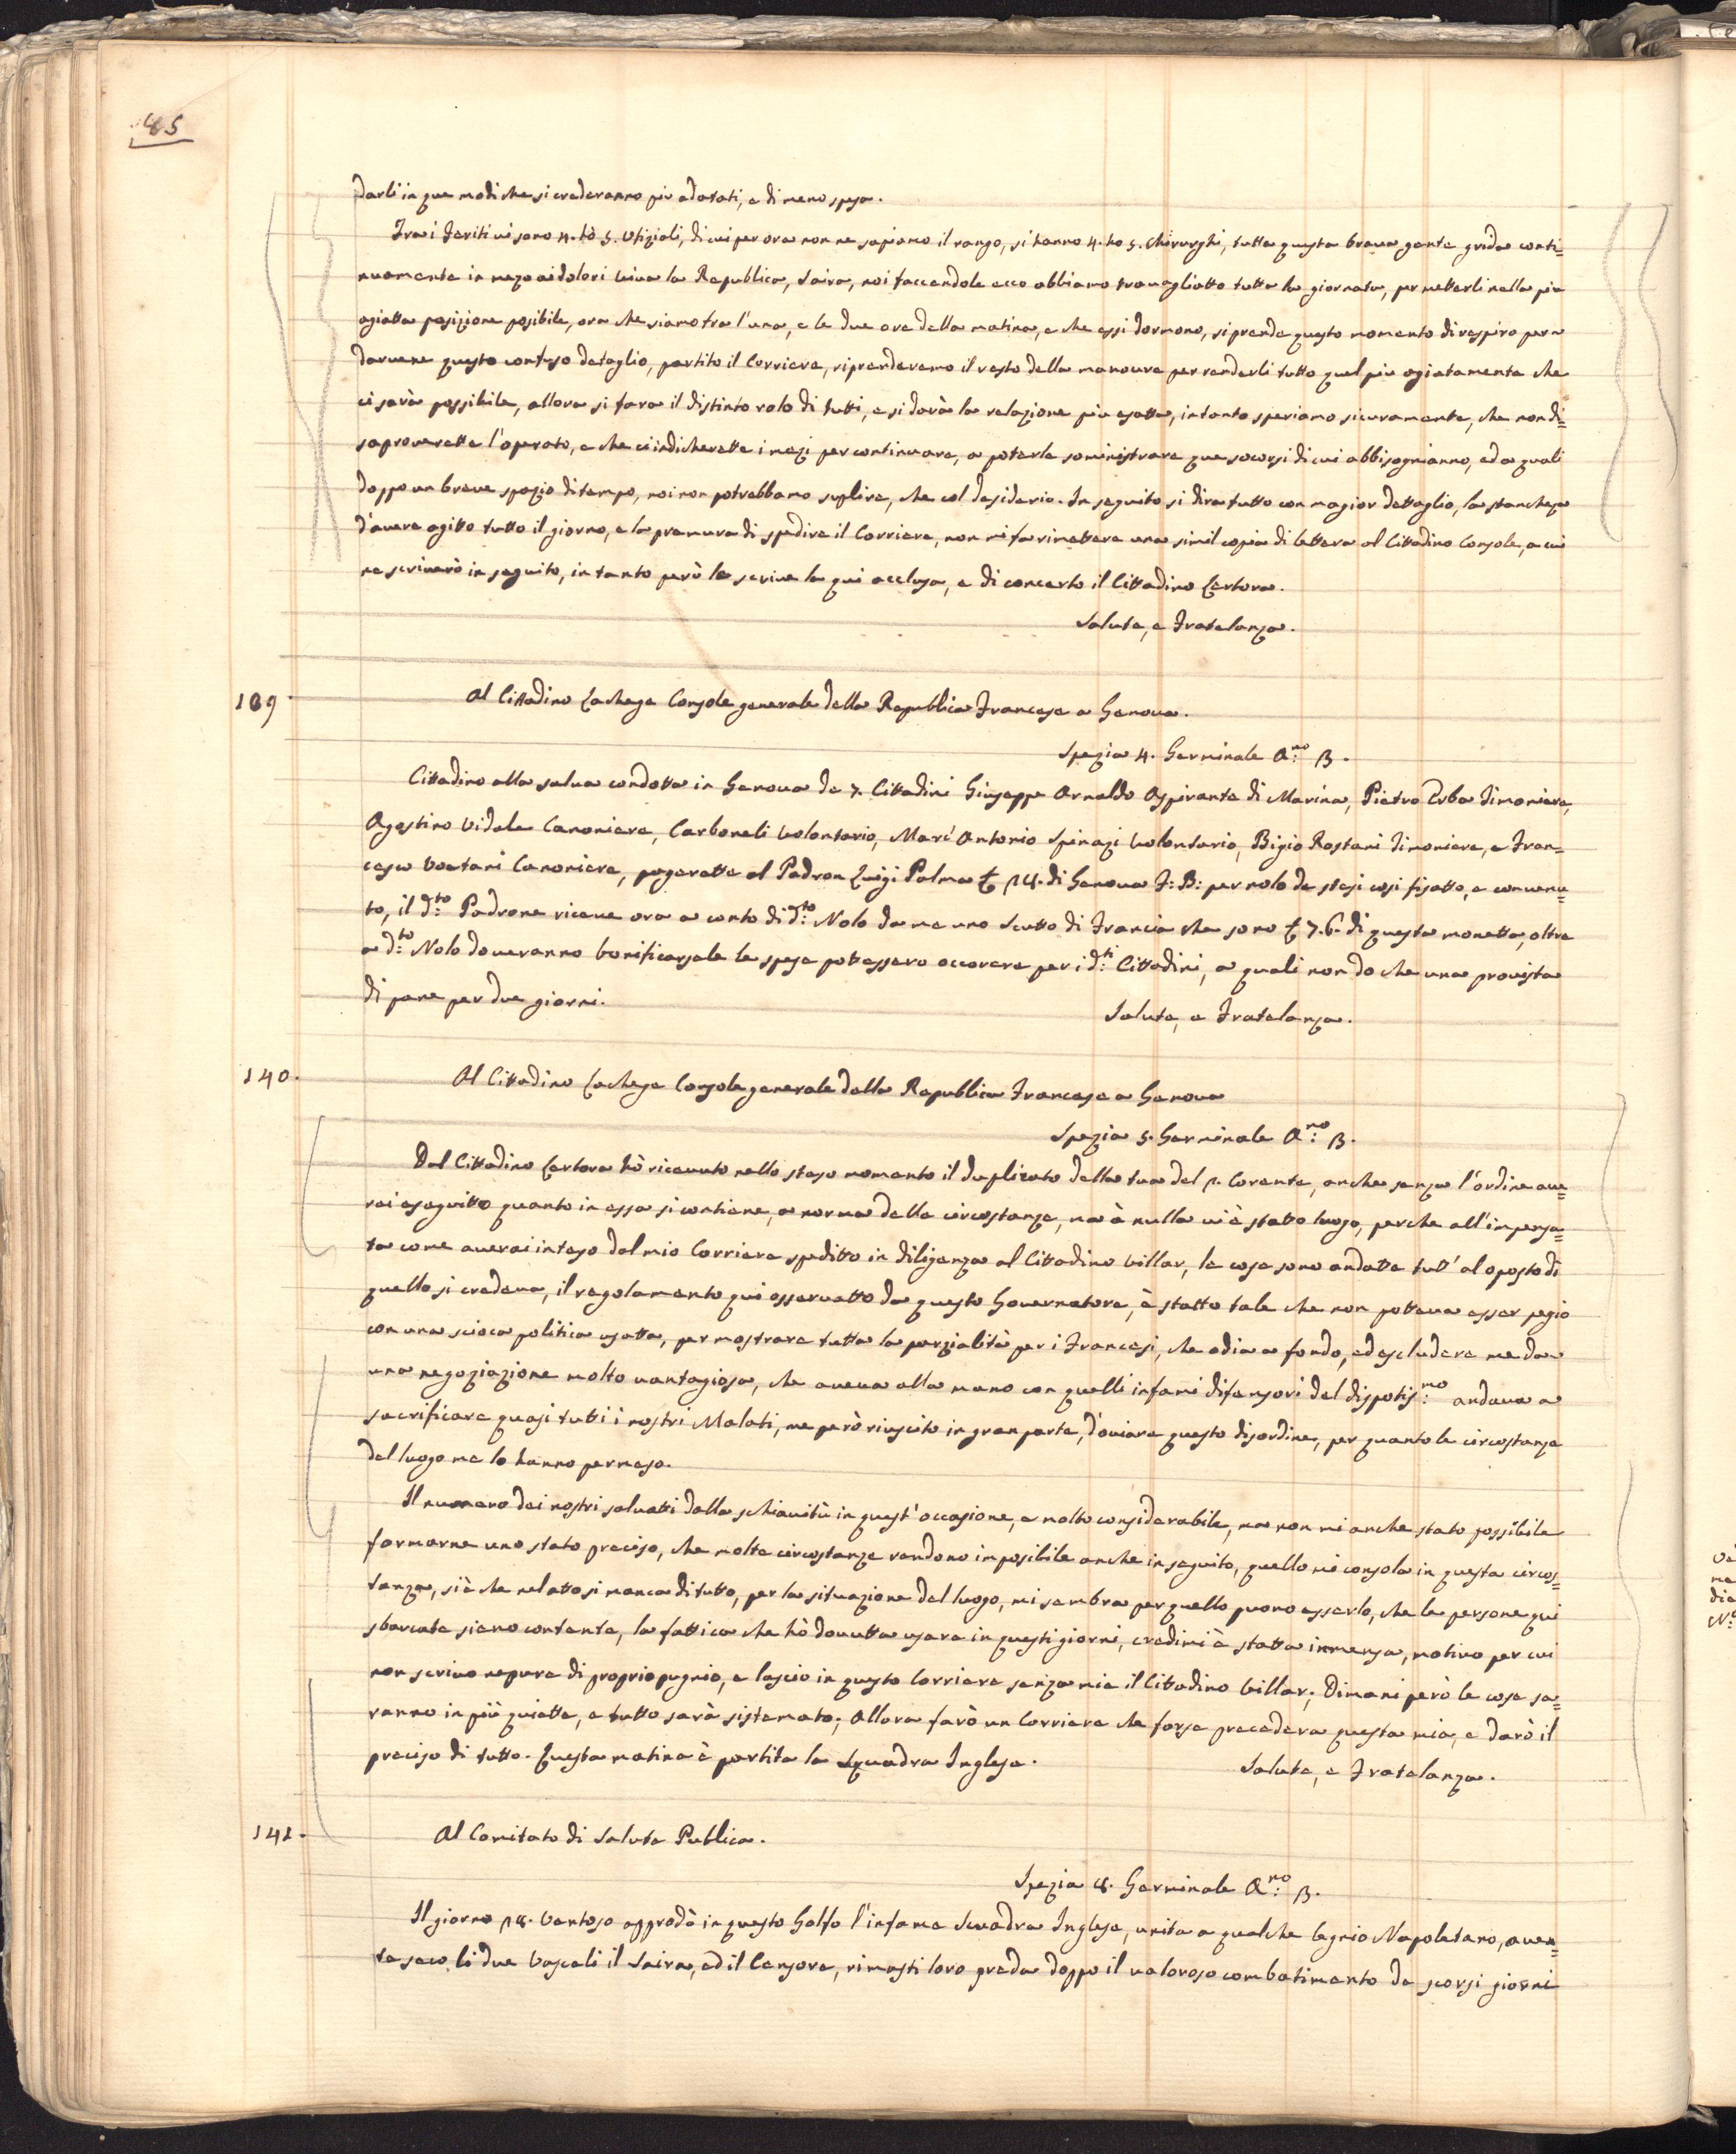 45
darli in que modi che si crederanno più adatati, e di meno spesa.
Tra i feriti vi sono 4. tò 5. Ufiziali, di cui per ora non ne sapiamo il rango, si hanno 4. to 5. Chirurghi, tutta questa brava gente grida conti=
nuamente in mezo ai dolori viva la Republica, Saira, noi faccendole ecco abbiamo travagliatto tutta la giornata, per metterli nella più
agiatta posizione posibile, ora che siamo tra l'una, e le due ore della matina, e che essi dormono, si prende questo momento di respiro per
darvene questo confuso detaglio, partito il Corriere, riprenderemo il resto della manovra per renderli tutto quel più agiatamente che
ci sarà possibile, allora si fara il distinto rolo di tutti, e si darà la relazione più esatta, intanto speriamo sicuramente, che non di=
saproverette l'operato, e che ci indicherette i mezi per continuare, a poterle soministrare que socorsi di cui abbisognianno, ed a quali
doppo un breve spazio di tempo, noi non potrebbamo suplire, che col desiderio. In seguito si dira tutto con magior dettaglio, la stancheza
d'avere agitto tutto il giorno, e la premura di spedire il Corriere, non mi fa rimettere una simil copia di lettera al Cittadino Console, a cui
ne scriverò in seguito, in tanto però le scrive la qui acclusa, e di concerto il Cittadino Certora.
Salute, e Fratelanza.
139. Al Cittadino Lachese Console generale della Republica Francese a Genova.
Spezia 4. Germinale A:no 3.
Cittadino alla salva condotta in Genova de 7. Cittadini Giuseppe Arnaldo Aspirante di Marina, Pietro Erba Timoniere,
Agostino Vidale Canoniere, Carboneli Volontario, Marc' Antonio Spinazi Volontario, Bigio Rostani Timoniere, e Fran=
cesco Voetani Canoniere, pagerette al Padron Luigi Palma £ 18. di Genova F: B: per nolo de stesi cosi fisatto, e convenu=
to, il d:to Padrone riceve ora a conto di d:to Nolo da me uno Scutto di Francia che sono £ 7.6. di questa monetta, oltre
a d:to Nolo doveranno bonificarsele le spese potessero occorere per i d:ti Cittadini, a quali non do che una provista
di pane per due giorni.
Salute, e Fratelanza.
140. Al Cittadino Lachese Console generale della Republica Francese a Genova
Spezia 5. Germinale A:no 3.
Dal Cittadino Certora hò ricevuto nello steso momento il duplicato della tua del p. Corente, anche senza l'ordine aue=
rei eseguitto quanto in essa si contiene, a norma delle circostanze, ma à nulla vi è statto luogo, perche all'impensa=
ta come averai inteso dal mio Corriere speditto in diligenza al Cittadino Villar, le cose sono andatte tutt' al oposto di
quello si credeva, il regolamento qui osservatto da questo Governatore, è statto tale che non potteva esser pegio
con una scioca politica usatta, per mostrare tutta la parzialità per i Francesi, che odia a fondo, ed escludere me da
una negoziazione molto vantagiosa, che aveva alla mano con quelli infami difensori del dispotis:mo andava a
sacrificare quasi tutti i nostri Malati, me però riuscito in gran parte, d'oviare questo disordine, per quanto le circostanze
del luogo me lo hanno permeso.
Il numero dei nostri salvatti dalla schiavitù in quest' occasione, e molto considerabile, ma non mi anche stato possibile
formarne uno stato preciso, che molte circostanze rendono imposibile anche in seguito, quello mi consola in questa circos=
tanza, si è che nelatto si manca di tutto, per la situazione del luogo, mi sembra per quello puono esserlo, che le persone qui
sbarcate siano contente, la fattica che hò dovutta usare in questi giorni, credimi è statta immensa, motivo per cui
non scrivo nepure di proprio pugnio, e lascio in questo Corriere senza mia il Cittadino Villar; Dimani però le cose sa=
ranno in più quiette, e tutto sarà sistemato; Allora farò un Corriere che forse precedera questa mia, e darò il
preciso di tutto. Questa matina è partita la Squadra Inglese. Salute, e Fratelanza.
141. Al Comitato di Salute Publica.
Spezia 8. Germinale A:no 3.
Il giorno 28. Ventoso approdò in questo Golfo l'infame Scuadra Inglese, unita a qualche legnio Napoletano, auen=
te seco li due Vasceli il Saira, ed il Censore, rimasti loro preda doppo il valoroso combatimento de scorsi giorni